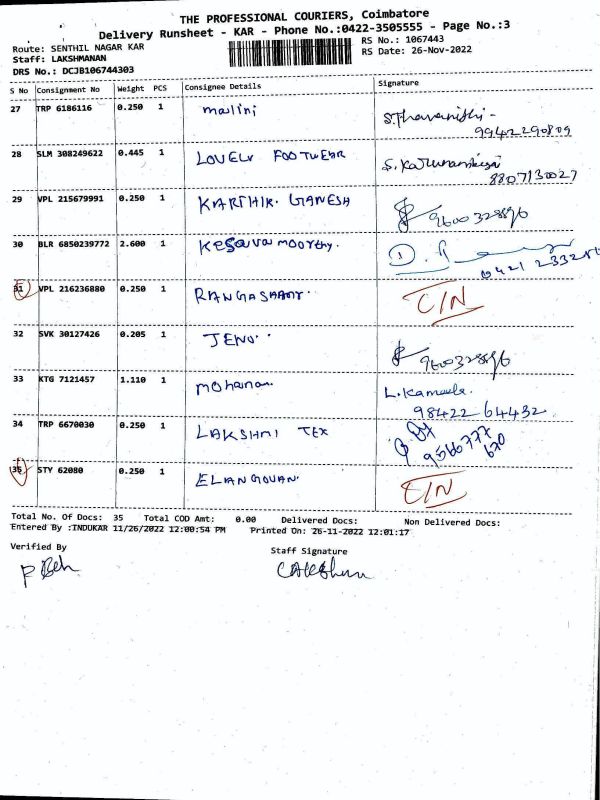 THE PROFESSIONAL COURIERS, Coimbatore
Delivery Runsheet - KAR - Phone No.:0422-3505555 - Page No.:3
Route: SENTHIL NAGAR KAR RS No.: 1067443
Staff: LAKSHMANAN RS Date: 26-Nov-2022
DRS No.: DCJB106744303
S No Consignment No Weight PCS Consignee Details Signature
27 TRP 6186116 0.250 1 malini
9942290809
28 SLM 308249622 0.445 1 LOVELY FOOTWEAR
8807130027
29 VPL 215679991 0.250 1 KARTHIK. GANESH
9600328896
30 BLR 6850239772 2.600 1 Kesava moorthy.
0421 2332
31 VPL 216236880 0.250 1 RANGASAMY. C/N
32 SVK 30127426 0.205 1 JENO.
9600328896
33 KTG 7121457 1.110 1 mohanan. L. Kamala.
98422 64432
34 TRP 6670030 0.250 1 LAKSHMI TEX
9566777
670
35 STY 62080 0.250 1 ELANGOVAN. C/N
Total No. Of Docs: 35 Total COD Amt: 0.00 Delivered Docs: Non Delivered Docs:
Entered By :INDUKAR 11/26/2022 12:00:54 PM Printed On: 26-11-2022 12:01:17
Verified By Staff Signature